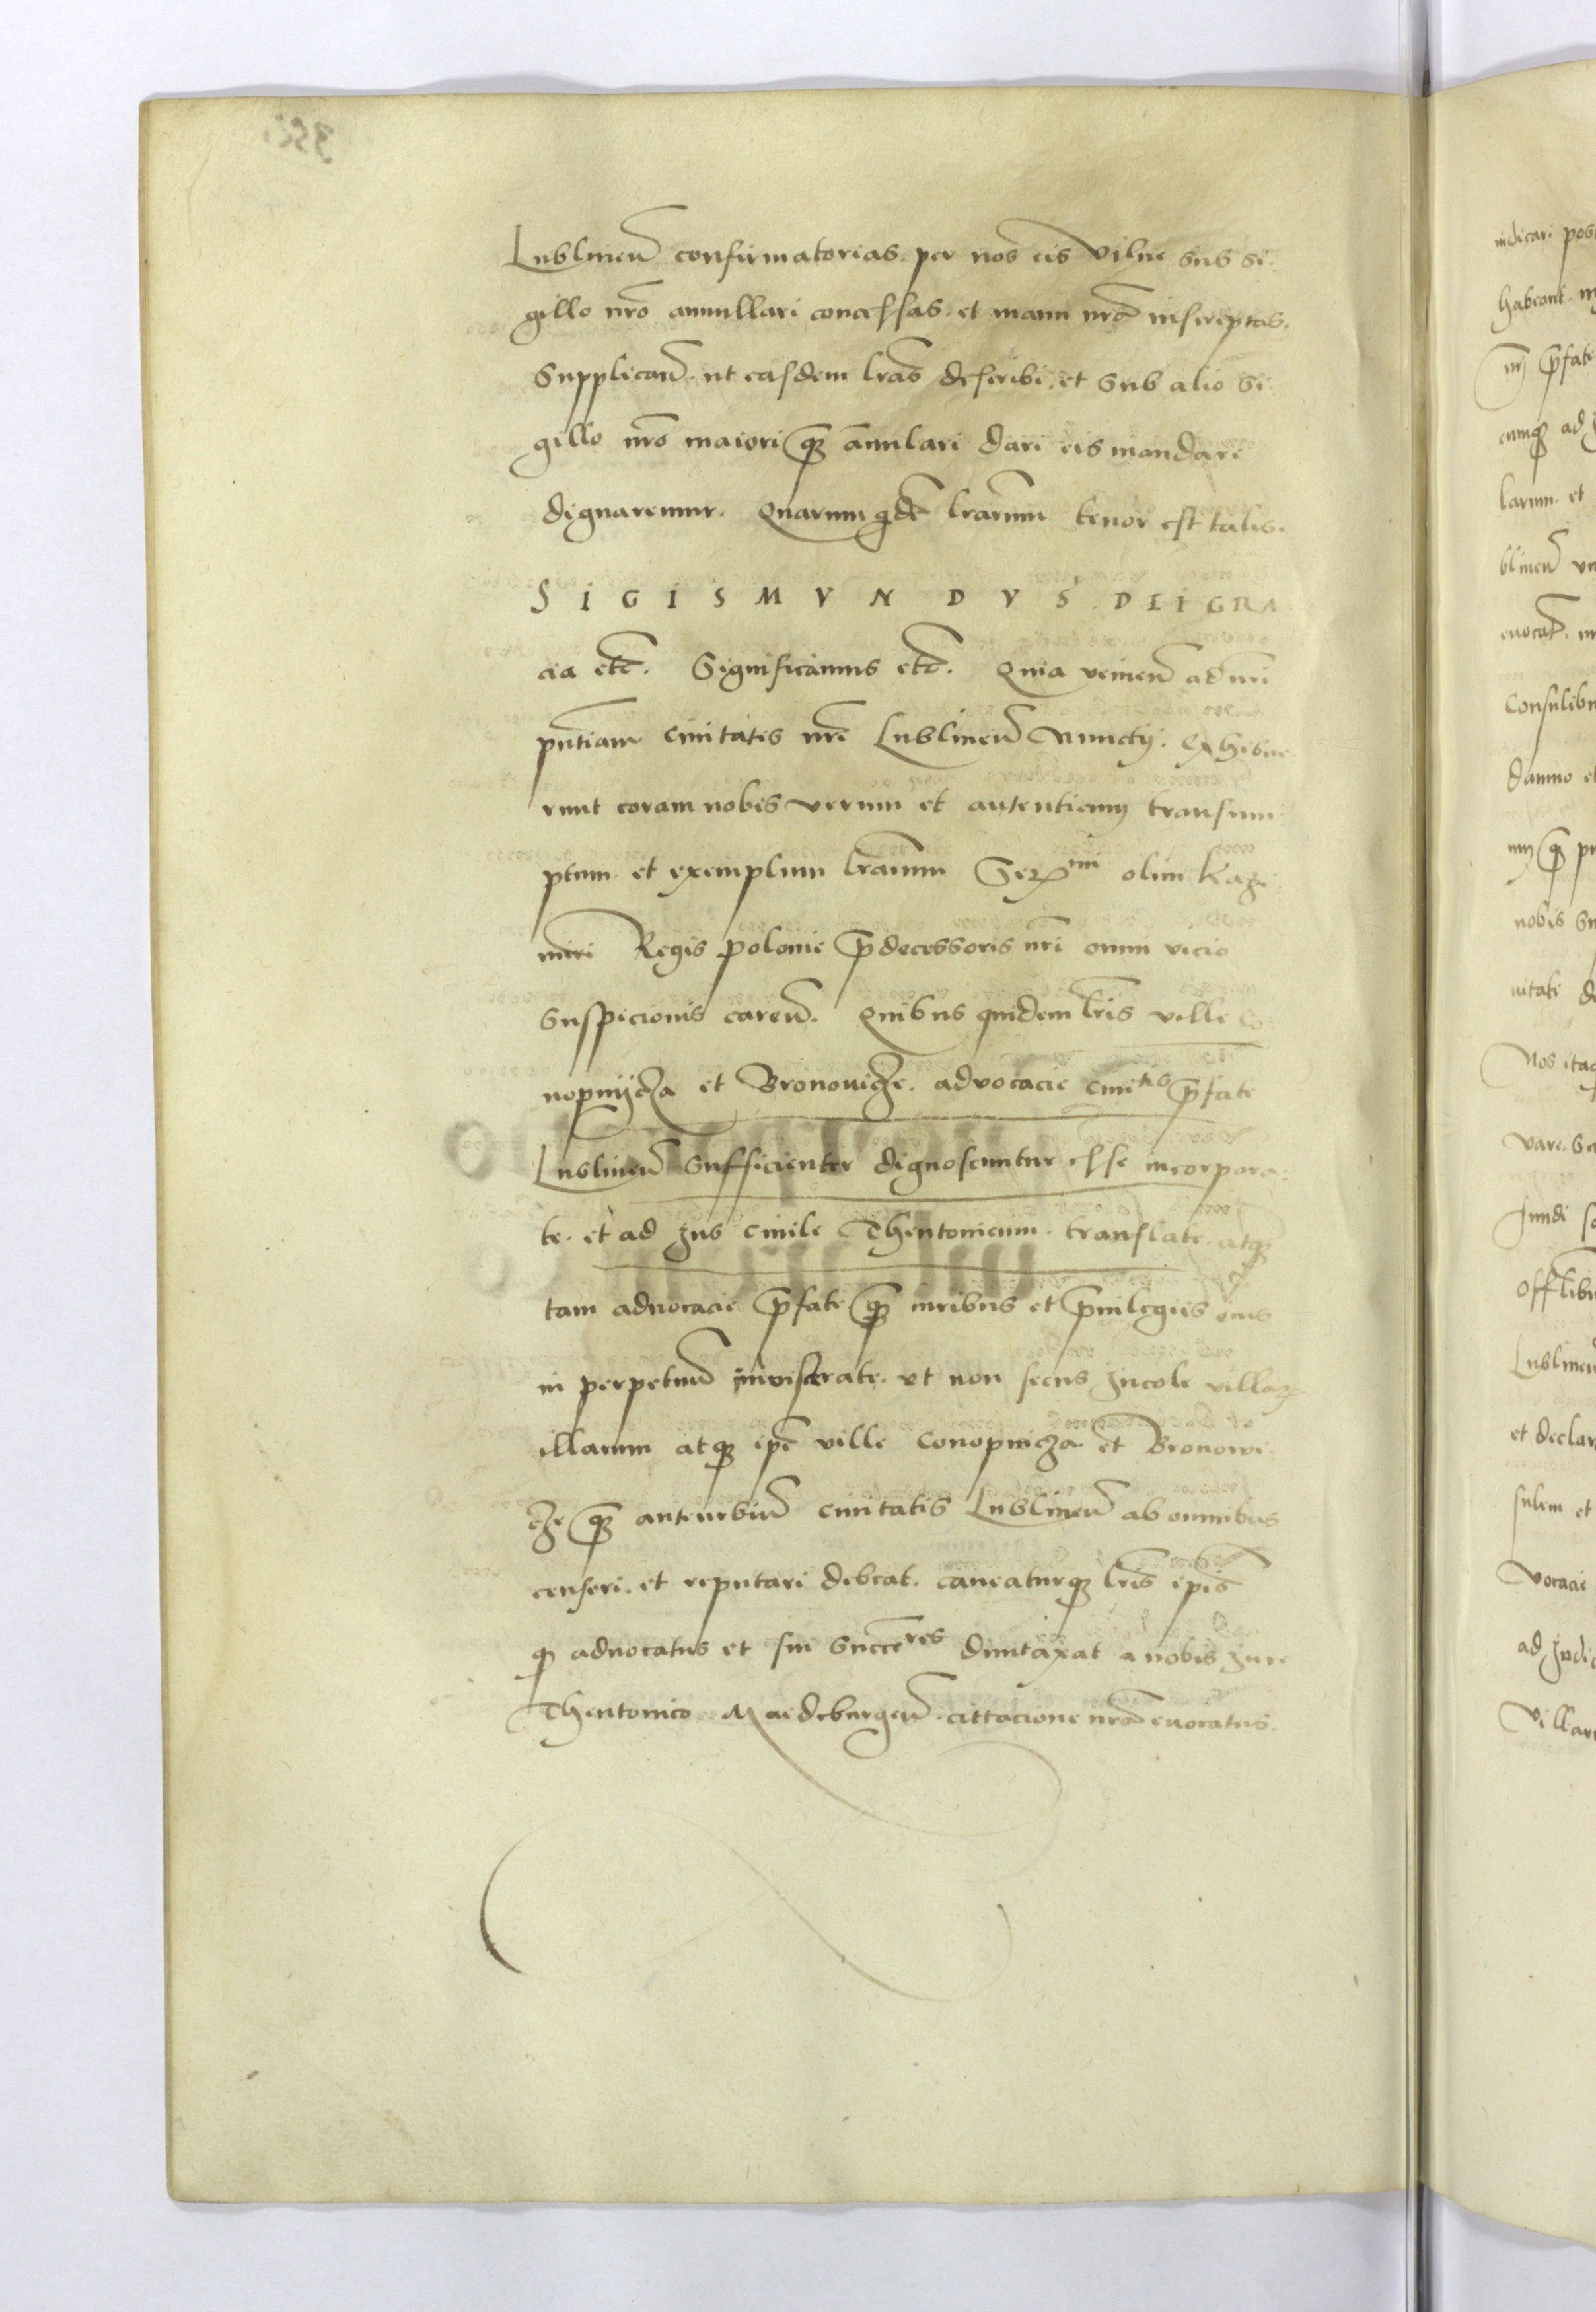 Lublineñ confirmatorias. per nos eis Vilne sub si
gillo nr̃o annullari concessas. et manu nr̃a inscriptas.
Supplicarũ. ut easdem lr̃as describi. et sub alio si
gillo nr̃o maiori qȝ annlari dari eis mandare
dignaremur. Quarum qdẽ lr̃arum tenor est talis.
SIGISMVNDVS DEI GRA
cia etc̃. Significamus etc̃. Quia venieñ ad nr̃i
pñtiam ciuitatis nr̃e Lublineñ Nunctij. Exhibue
runt coram nobis verum et autenticum transsum
ptum et exemplum lr̃arum Serᵐⁱ olim Kazi
miri Regis polonie p̃decessoris nr̃i omni vicio
Suspicionis careñ. Quibus quidem lr̃is ville Co
nopnijcza et Bronouicze. advocacie ciuitis p̃fate
Lublineñ sufficienter dignoscuntur esse incorpora
te. et ad Jus ciuile Theutonicum. translate. atqȝ
tam aduocacie p̃fate qȝ iuribus et p̃uilegiis eius
in perpetuũ inviscerate. ut non secus Jncole villaꝝ
illarum atqȝ ip̃e ville Conopnicza et Bronowi
cze qȝ anteurbiũ ciuitatis Lublineñ ab omnibus
censeri. et reputari debeat. caueaturqȝ lr̃is ip̃is
qȝ aduocatus et sui Succeres duntaxat a nobis Jure
Theutonico Maedeburgeñ. cittacione nr̃a euocatus.
iudicari pos
habeant.
p̃fate
cumqȝ ad
larum. et
blineñ
euocat̃.
Consulibu
damno et
nobis
uitati
Nos itaq
vare.
Lublineñ
et declar
sulem et
vocacie
ad Judic
Villar